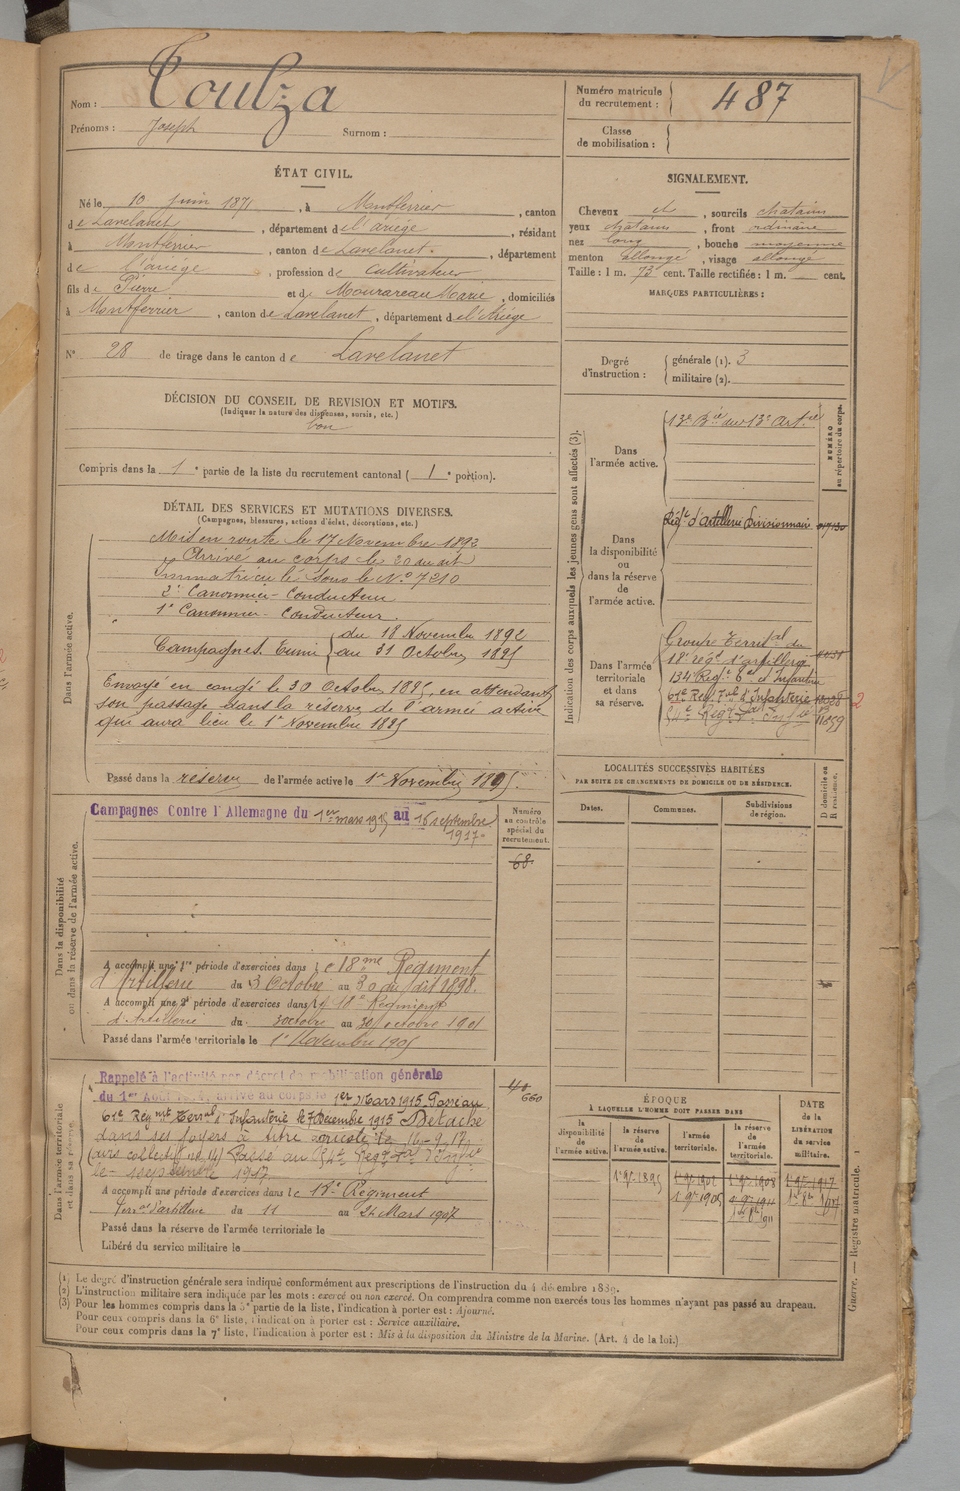 Nom : Toulza
Prénoms : Joseph Surnom :
Numéro matricule du recrutement : 487
Classe de mobilisation :
ÉTAT CIVIL.
Né le 10 juin 1871, à Montferrier, canton
de Lavelanet, département de l'ariège, résidant
à Montferrier, canton de Lavelanet, département
de l'ariège, profession de cultivateur
fils de Pierre et de Mourareau Marie, domiciliés
à Montferrier, canton de Lavelanet, département de l'Ariège
N° 28 de tirage dans le canton de Lavelanet
SIGNALEMENT.
Cheveux et, sourcils chatains
yeux chatains, front ordinaire
nez long, bouche moyenne
menton allongé, visage allongé
Taille : 1 m. 73 cent. Taille rectifiée : 1 m. cent.
MARQUES PARTICULIÈRES :
Degré d'instruction : générale (1). 3
militaire (2).
DÉCISION DU CONSEIL DE REVISION ET MOTIFS.
(Indiquer la nature des dispenses, sursis, etc.)
bon
Compris dans la 1e partie de la liste du recrutement cantonal (1e portion).
DÉTAIL DES SERVICES ET MUTATIONS DIVERSES.
(Campagnes, blessures, actions d'éclat, décorations, etc.)
Dans l'armée active.
Mis en route le 17 Novembre 1892
Arrivé au corps le 20 du dit
immatriculé sous le N° 7210
2e Canonnier-Conducteur
1e Canonnier-Conducteur.
Campagnes. du 18 Novembre 1892
au 31 Octobre 1895
Envoyé en congé le 30 Octobre 1895, en attendant
son passage dans la réserve de l'armée active
qui aura lieu le 1er Novembre 1895
Passé dans la réserve de l'armée active le 1er Novembre 1895.
Dans la disponibilité ou dans la réserve de l'armée active.
Campagnes Contre l'Allemagne du 1er mars 1915 au 16 septembre
1917.
Numéro au contrôle spécial du recrutement.
68
A accompli une 1re période d'exercices dans le 18me Régiment
d'Artillerie du 3 Octobre au 30 du dit 1898.
A accompli une 2e période d'exercices dans le 18e Régiment
d'Artillerie du 3 octobre au 30 octobre 1901
Passé dans l'armée territoriale le 1er Novembre 1905
Dans l'armée territoriale et dans sa réserve.
Rappelé à l'activité par décret de mobilisation générale
du 1er Août 1914, arrivé au corps le 1er Mars 1915. Passé au
61e Regmt Terral d'Infanterie le 7 Décembre 1915 Détaché
dans ses foyers à titre agricole le 16-9-17
Passé au Regt
le septembre 1917
660
A accompli une période d'exercices dans le 18e Régiment
d'artillerie du 11 au 24 Mars 1907
Passé dans la réserve de l'armée territoriale le
Libéré du service militaire le
Indication des corps auxquels les jeunes gens sont affectés (3).
NUMÉRO au répertoire du corps.
Dans l'armée active.
13e Bie du 13e Artie
Dans la disponibilité ou dans la réserve de l'armée active.
Régt d'artillerie Divisionnaire
Dans l'armée territoriale et dans sa réserve.
Groupe Territal du
18e régt d'artillerie
134 Régt d'Infanterie
61e Reg Tal d'Infanterie
2
LOCALITÉS SUCCESSIVES HABITÉES
PAR SUITE DE CHANGEMENTS DE DOMICILE OU DE RÉSIDENCE.
Dates. Communes. Subdivisions de région. D domicile ou R résidence.
ÉPOQUE
À LAQUELLE L'HOMME DOIT PASSER DANS
DATE DE LA LIBÉRATION du service militaire.
la disponibilité de l'armée active. la réserve de l'armée active. l'armée territoriale. la réserve de l'armée territoriale.
1 9bre 1895 1 9bre 1902 1 9bre 1908 1 9bre 1917
1 9bre 1905 1 9bre 1911
Guerre. — Registre matricule. 1
(1) Le degré d'instruction générale sera indiqué conformément aux prescriptions de l'instruction du 4 décembre 1889.
(2) L'instruction militaire sera indiquée par les mots : exercé ou non exercé. On comprendra comme non exercés tous les hommes n'ayant pas passé au drapeau.
(3) Pour les hommes compris dans la 5e partie de la liste, l'indication à porter est : Ajourné.
Pour ceux compris dans la 6e liste, l'indication à porter est : Service auxiliaire.
Pour ceux compris dans la 7e liste, l'indication à porter est : Mis à la disposition du Ministre de la Marine. (Art. 4 de la loi.)